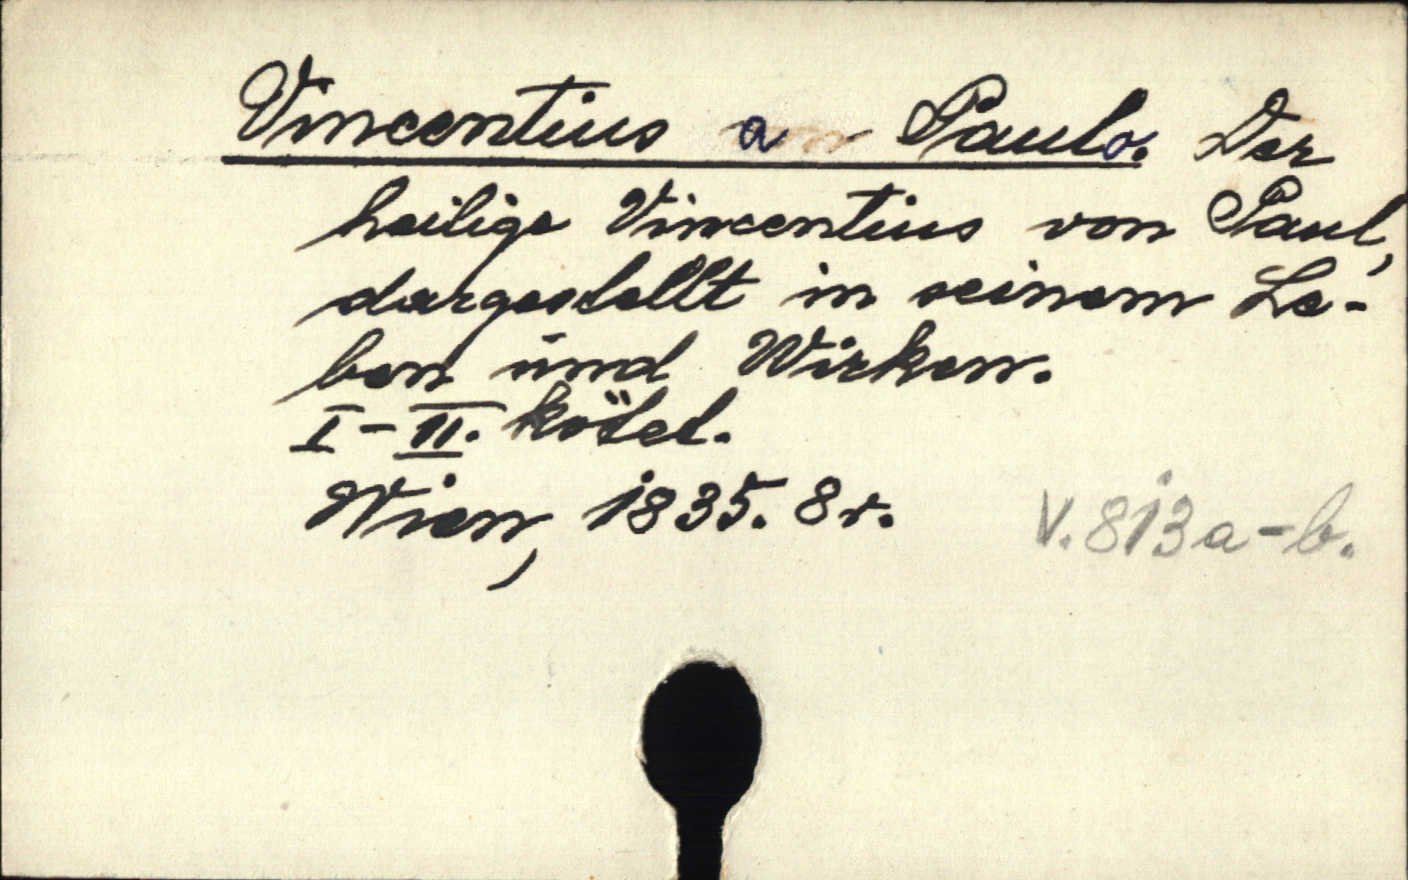 Vincentius a Paulo. Der
heilige Vincentius von Paul,
dargestellt in seinem Le-
ben und Wirken.
I-II. kötet.
Wien, 1835. 8r.
V.813a-b.